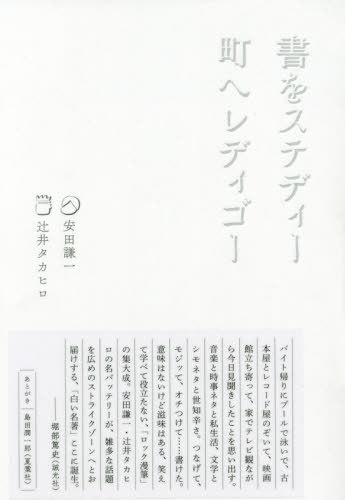 書をステディー
町へレディゴー
安田謙一
辻井タカヒロ
バイト帰りにプールで泳いで、古
本屋とレコード屋のぞいて、映画
館立ち寄って、家でテレビ観なが
ら今日見聞きしたことを思い出す。
音楽と時事ネタと私生活、文学と
シモネタと世知辛さ。つなげて、
モジッて、オチつけて……書けた。
意味はないけど滋味はある、笑え
て学べて役立たない、「ロック漫筆」
の集大成。安田謙一・辻井タカヒ
ロの名バッテリーが、雑多な話題
を広めのストライクゾーンへとお
届けする、「白い名著」ここに誕生。
——堀部篤史(誠光社)
あとがき 島田潤一郎(夏葉社)